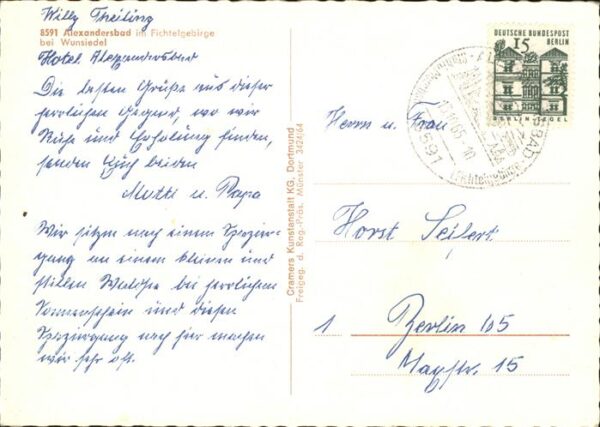 Willy Theiling
8591 Alexandersbad im Fichtelgebirge
bei Wunsiedel
Hotel Alexandersbad
Die besten Grüße aus dieser
herrlichen Gegend, wo wir
Ruhe und Erholung finden,
senden Euch beiden
Mutti u. Papa
Wir sitzen nach einem Spazier-
gang an einem kleinen und
stillen Waldsee bei herrlichem
Sonnenschein und diesen
Spaziergang nach hier machen
wir sehr oft.
Cramers Kunstanstalt KG, Dortmund
Freigeg. d. Reg.-Präs. Münster 3424/64
DEUTSCHE BUNDESPOST
BERLIN
15
BERLIN TEGEL
8591
Fichtelgebirge
Herrn u. Frau
Horst Seifert
1 Berlin 65
15